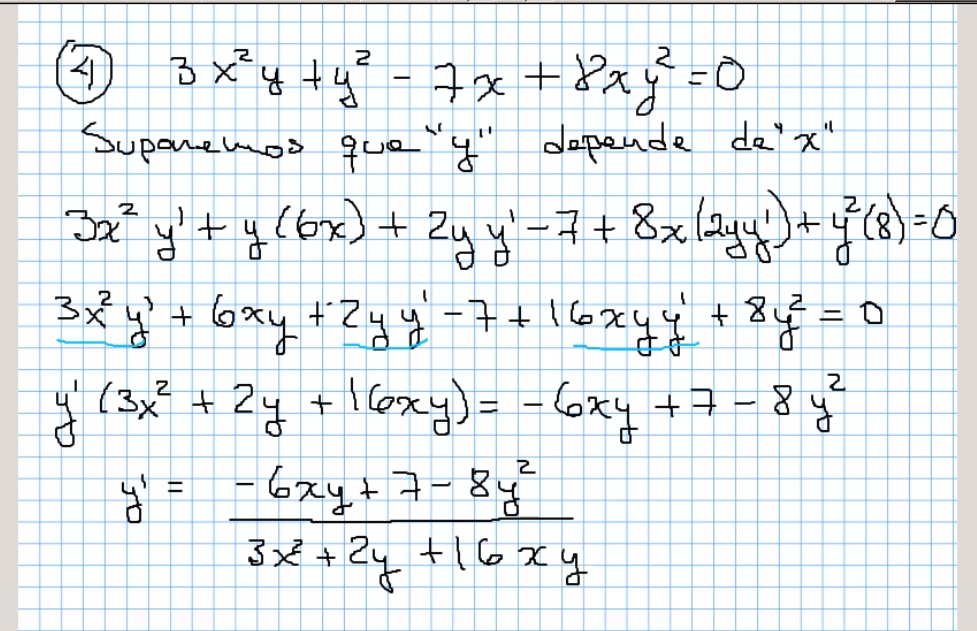 ④ 3x²y + y² - 7x + 8xy² = 0
Suponemos que "y" depende de "x"
3x² y' + y(6x) + 2y y' - 7 + 8x(2yy') + y²(8) = 0
3x² y' + 6xy + 2y y' - 7 + 16xyy' + 8y² = 0
y' (3x² + 2y + 16xy) = -6xy + 7 - 8y²
y' = -6xy + 7 - 8y²
3x² + 2y + 16xy